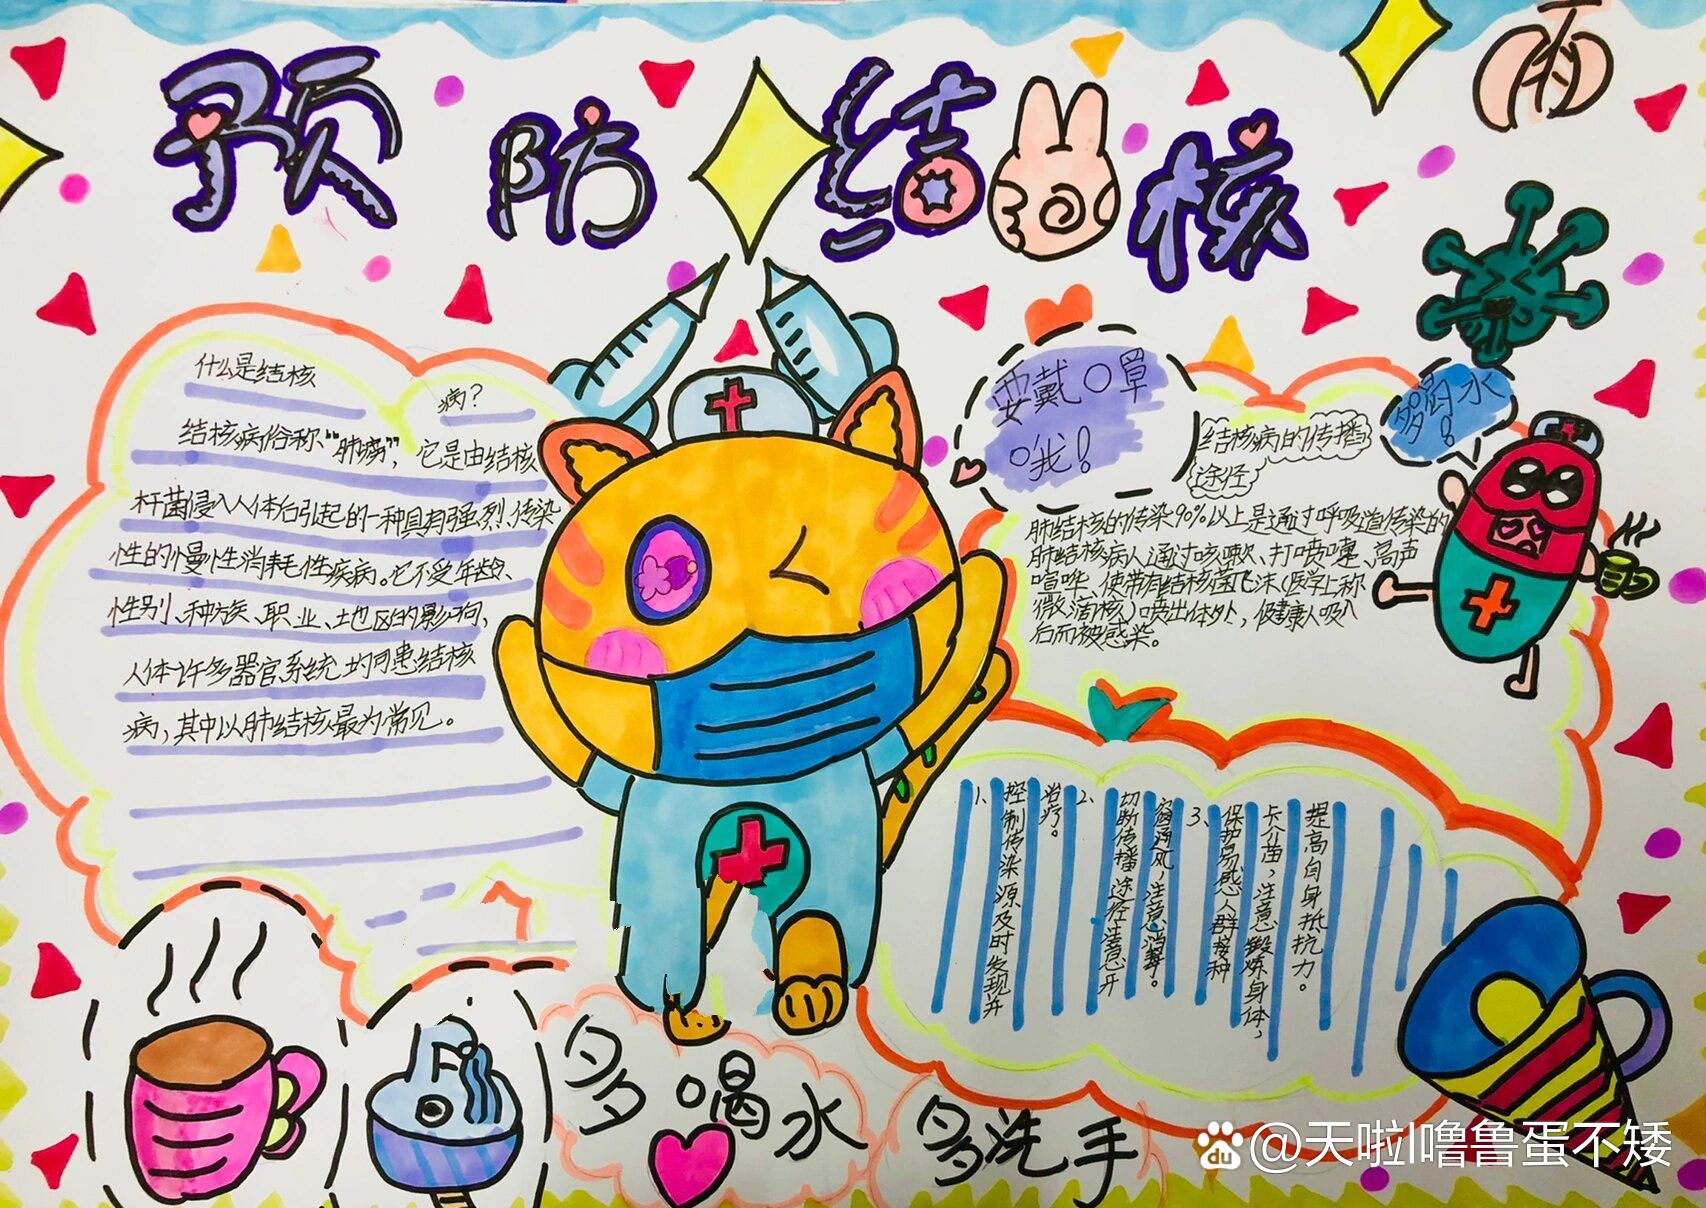 预防结核
什么是结核
病?
结核病俗称“肺痨”，它是由结核
杆菌侵入人体后引起的一种具有强烈传染
性的慢性消耗性疾病。它不受年龄、
性别、种族、职业、地区的影响,
人体许多器官、系统均可患结核
病，其中以肺结核最为常见。
要戴口罩
哦!
多喝水
哦!
结核病的传播
途径
肺结核的传染90%以上是通过呼吸道传染的
肺结核病人通过咳嗽、打喷嚏、高声
喧哗、使带有结核菌飞沫(医学上称
微滴核)喷出体外，使健康人吸入
后而被感染。
1、控制传染源及时发现并
治疗。
2、切断传播途径注意开
窗通风，注意消毒。
3、保护易感人群接种
卡介苗，注意锻炼身体，
提高自身抵抗力。
多喝水
多洗手
du @天啦l噜鲁蛋不矮